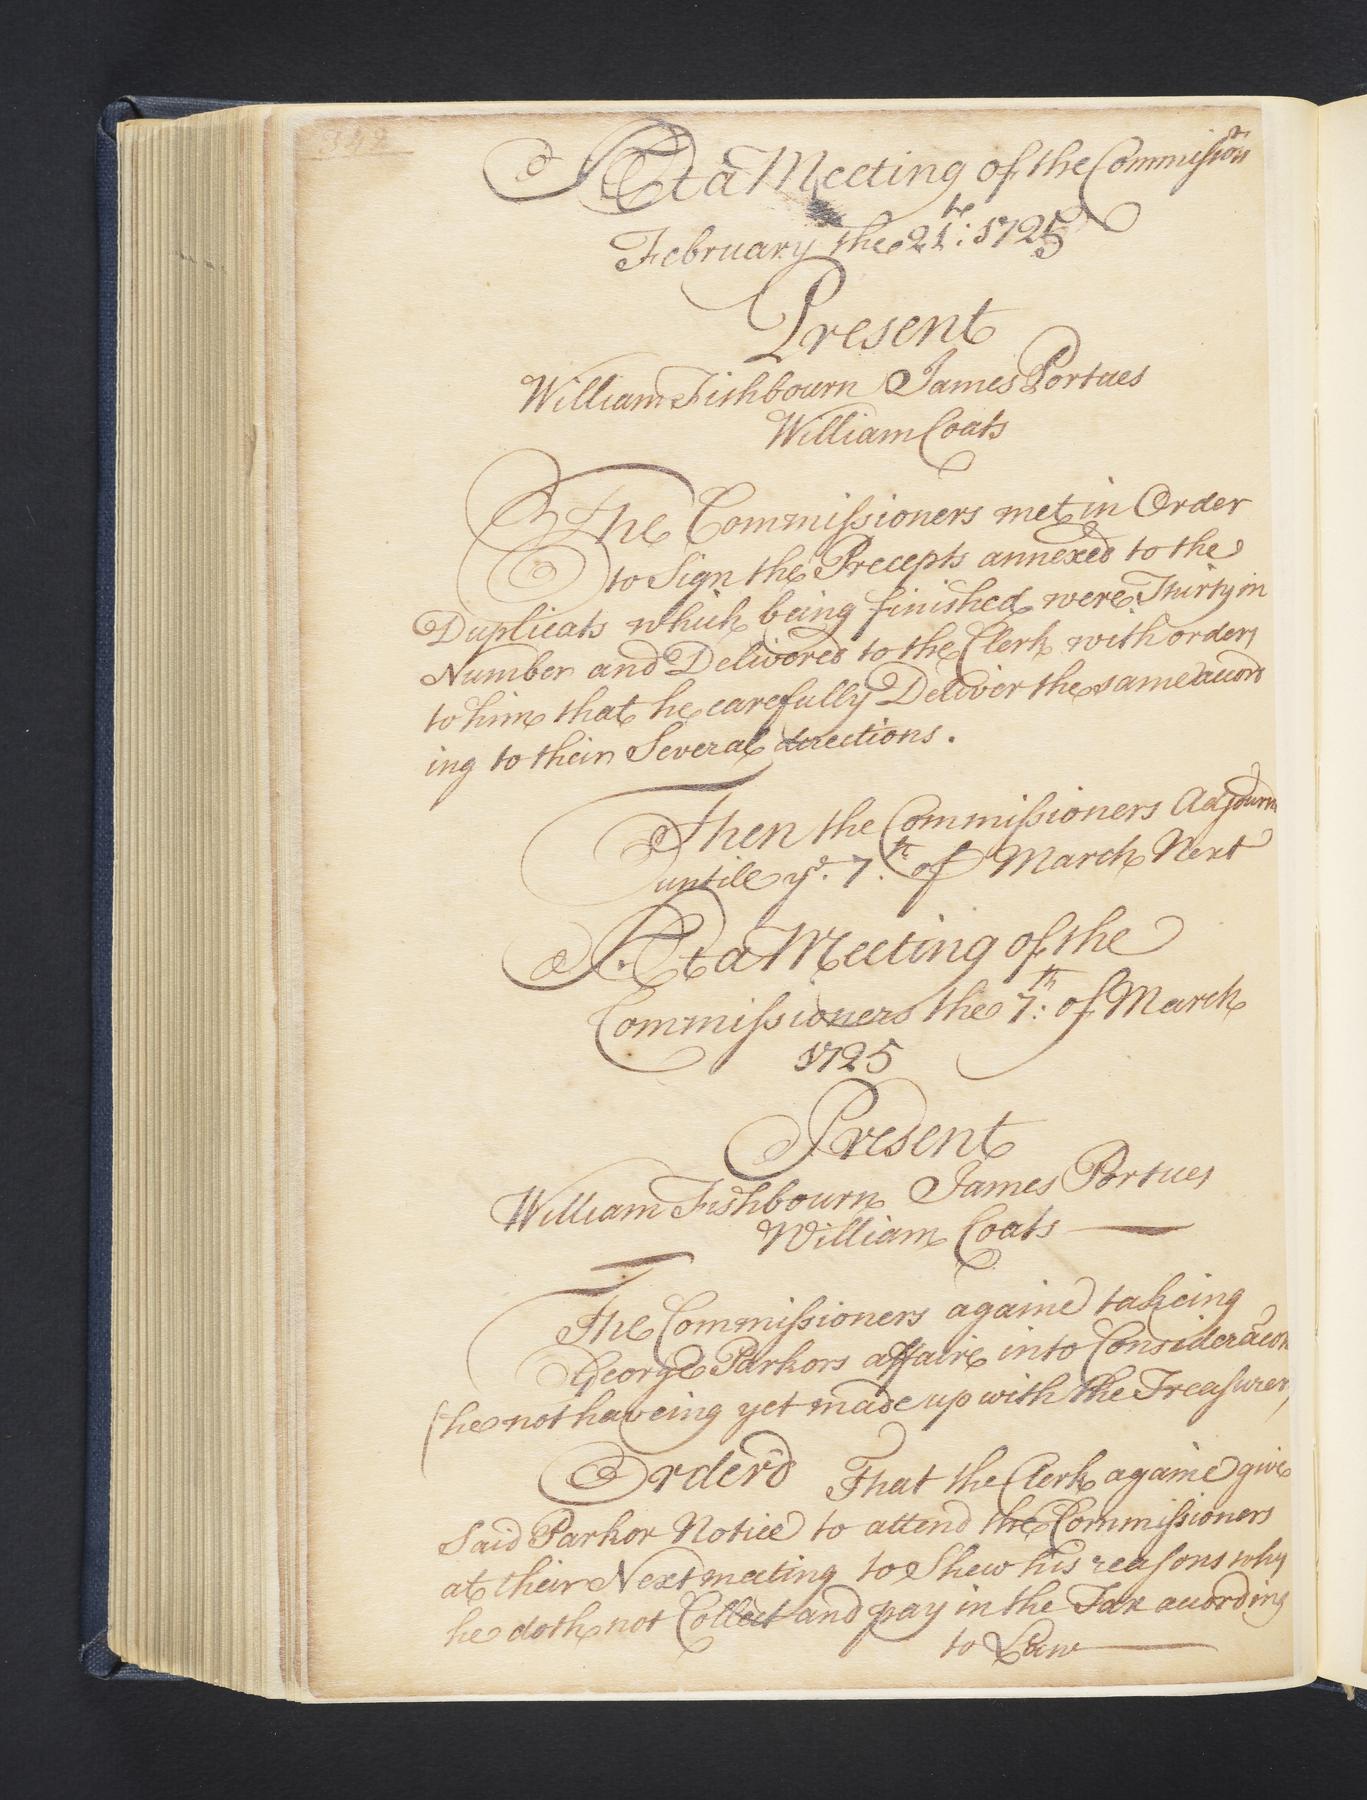 342
At a Meeting of the Commissiors
February the 21:te 1725
Present
William Fishbourn James Portues
William Coats
The Commissioners met in Order
to Sign the Precepts annexed to the
Duplicats which being finished were Thirty in
Number and Delivored to the Clerk with orders
to him that he carefully Deliver the same accord
ing to their Several directions.
Then the Commissioners Adjourn
untile ye. 7:th of March Next
At a Meeting of the
Commissioners the 7:th of March
1725
Present
William Fishbourn James Portues
William Coats
The Commissioners againe takeing
George Parkors affaire into Consideracon
(he not haveing yet made up with the Treasurer)
Order'd That the Clerk againe give
Said Parkor Notice to attend the Commissioners
at their Next meeting to Shew his reasons why
he doth not Collect and pay in the Tax acording
to Law